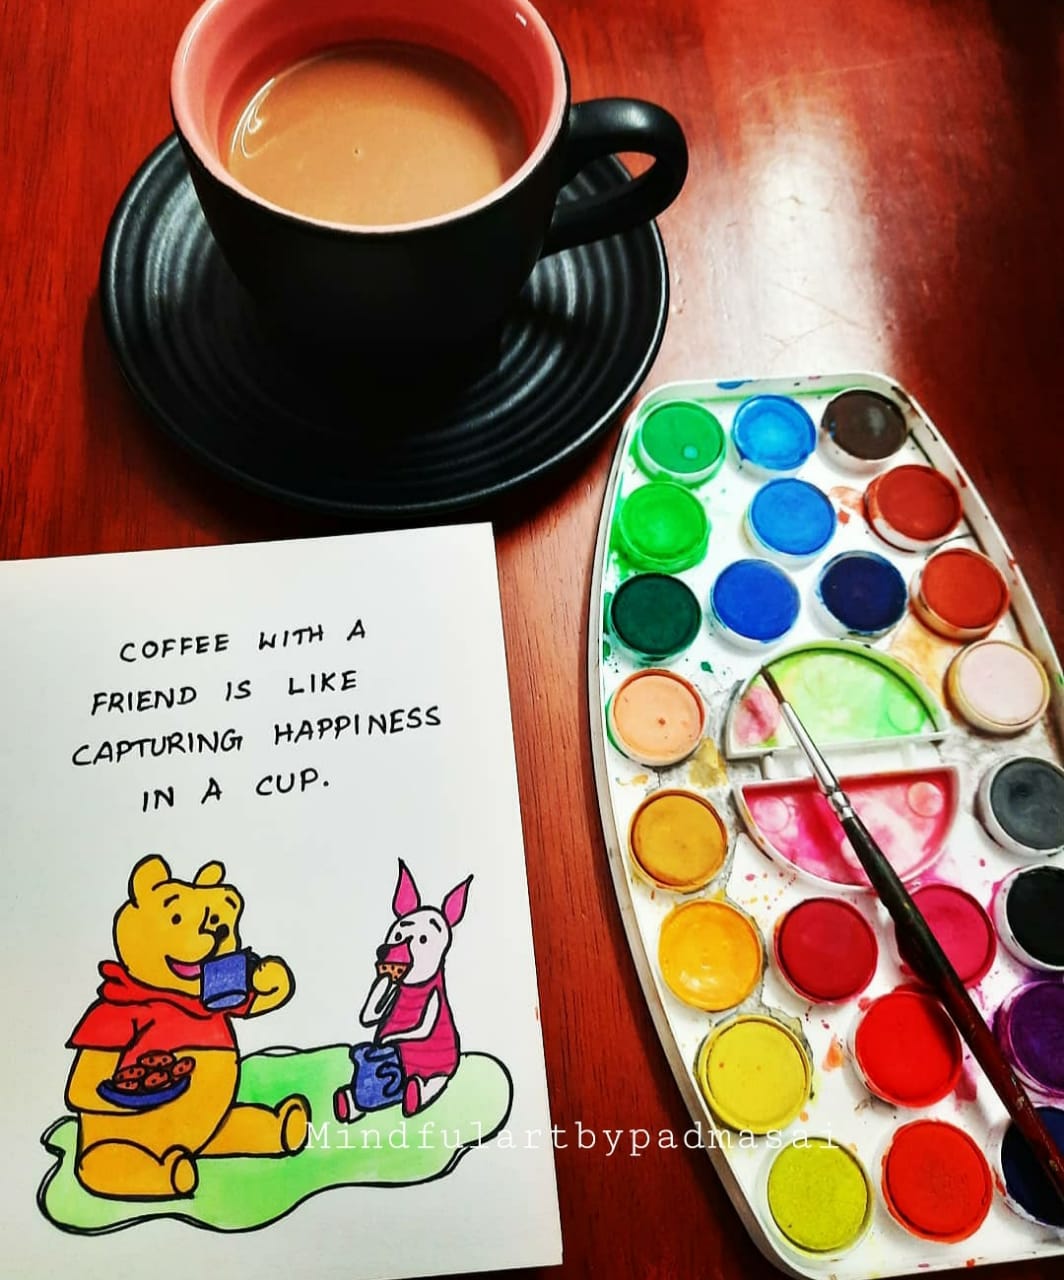 COFFEE WITH A
FRIEND IS LIKE
CAPTURING HAPPINESS
IN A CUP.
Mindfulartbypadmasai